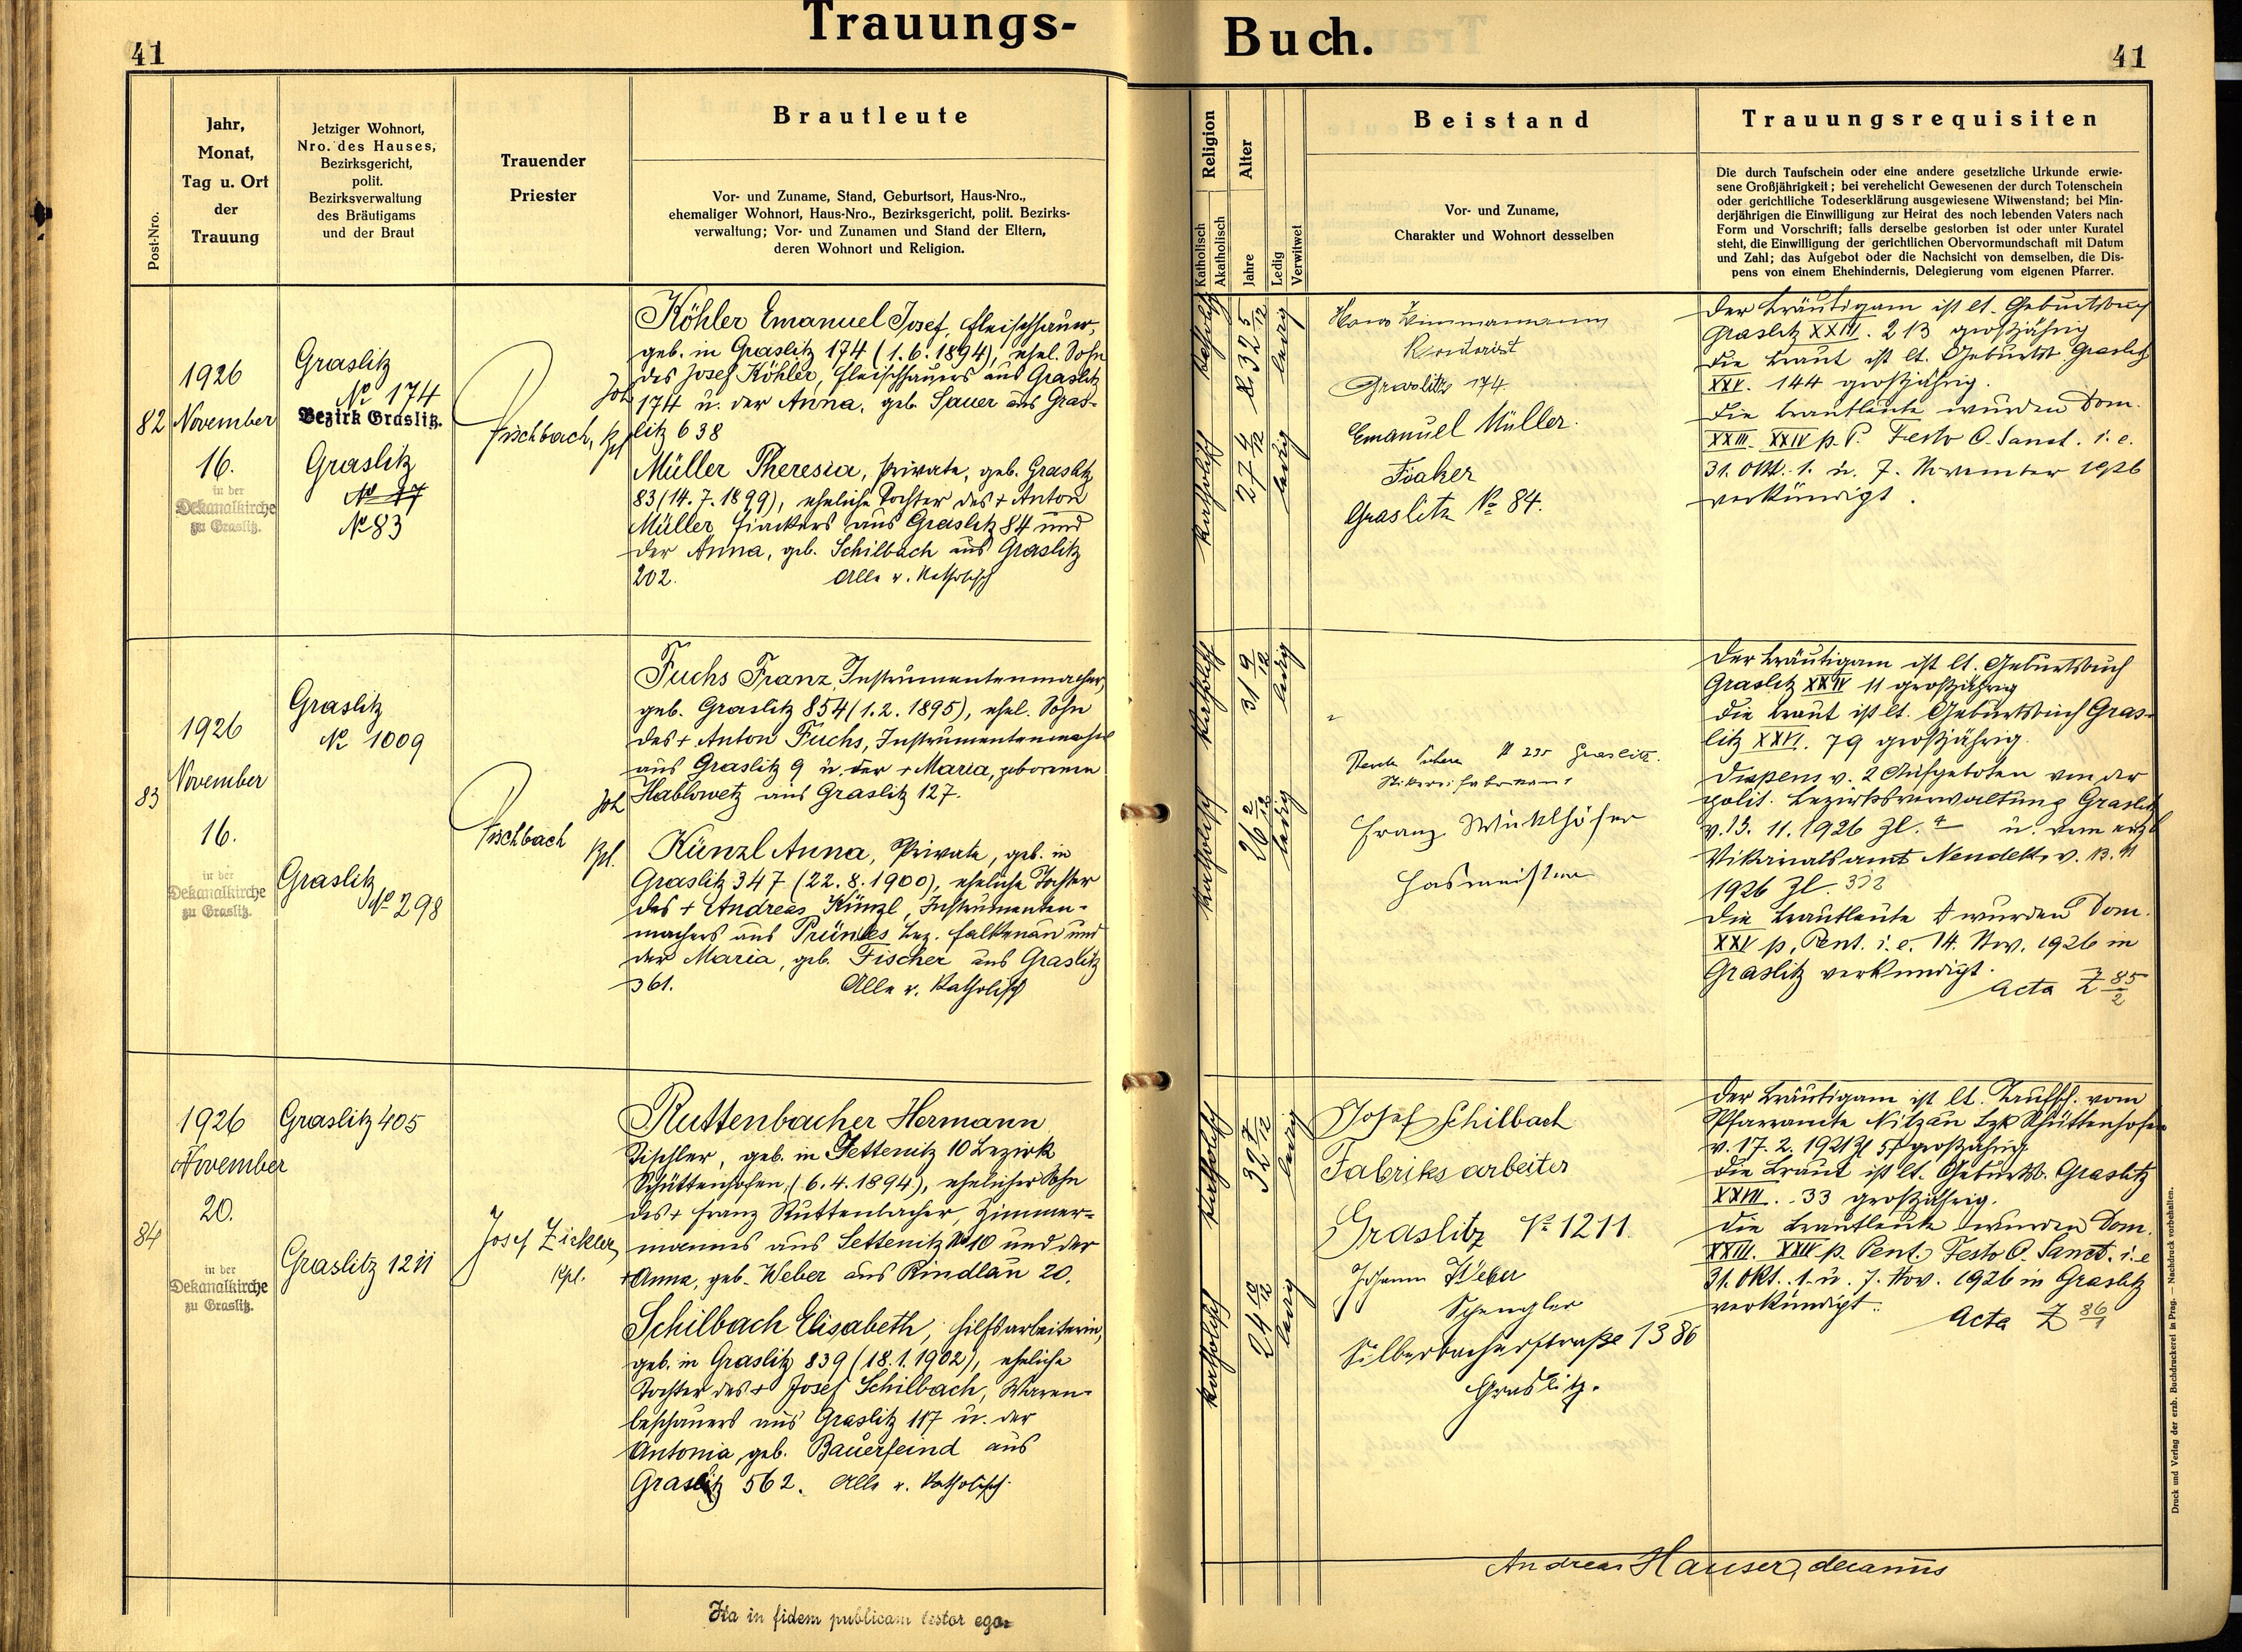 Trauungs-
Buch.
41
41
Post-Nro.
Jahr,
Monat,
Tag u. Ort
der
Trauung
Jetziger Wohnort,
Nro. des Hauses,
Bezirksgericht,
polit.
Bezirksverwaltung
des Bräutigams
und der Braut
Trauender
Priester
Brautleute
Vor- und Zuname, Stand, Geburtsort, Haus-Nro.,
ehemaliger Wohnort, Haus-Nro., Bezirksgericht, polit. Bezirks-
verwaltung; Vor- und Zunamen und Stand der Eltern,
deren Wohnort und Religion.
Religion
Katholisch
Akatholisch
Alter
Jahre
Ledig
Verwitwet
Beistand
Vor- und Zuname,
Charakter und Wohnort desselben
Trauungsrequisiten
Die durch Taufschein oder eine andere gesetzliche Urkunde erwie-
sene Großjährigkeit; bei verehelicht Gewesenen der durch Totenschein
oder gerichtliche Todeserklärung ausgewiesene Witwenstand; bei Min-
derjährigen die Einwilligung zur Heirat des noch lebenden Vaters nach
Form und Vorschrift; falls derselbe gestorben ist oder unter Kuratel
steht, die Einwilligung der gerichtlichen Obervormundschaft mit Datum
und Zahl; das Aufgebot oder die Nachsicht von demselben, die Dis-
pens von einem Ehehindernis, Delegierung vom eigenen Pfarrer.
82
1926
November
16.
in der
Dekanalkirche
zu Graslitz.
Graslitz
No 174
Bezirk Graslitz.
Graslitz
No 47
No 83
Joh
Fischbach, Kpl
Köhler Emanuel Josef, Fleischhauer,
geb. in Graslitz 174 (1.6.1894), ehel. Sohn
des Josef Köhler, Fleischhauers aus Graslitz
174 u. der Anna, geb. Sauer aus Gras-
litz 638
Müller Theresia, Private, geb. Graslitz
83 (14.7.1899), eheliche Tochter des + Anton
Müller Fiackers aus Graslitz 84 und
der Anna, geb. Schilbach aus Graslitz
202. Alle r. Katholisch
katholisch
32 5/12
ledig
katholisch
27 4/12
ledig
Graslitz 174
Emanuel Müller.
Fiaker
Graslitz No 84.
Der Bräutigam ist lt. Geburtsbuch
Graslitz XXIII. 213 großjährig
Die Braut ist lt. Geburtsb. Graslitz
XXV. 144 großjährig.
Die Brautleute wurden Dom.
XXIII. XXIV p. P. Festo O. Sanct. i. e.
31. Okt. 1. u. 7. November 1926
verkündigt.
83
1926
November
16.
in der
Dekanalkirche
zu Graslitz.
Graslitz
No 1009
Graslitz
No 298
Joh
Fischbach
Kpl.
Fuchs Franz, Instrumentenmacher,
geb. Graslitz 854 (1.2.1895), ehel. Sohn
des + Anton Fuchs, Instrumentenmacher
aus Graslitz 9 u. der + Maria, geborenen
Hablowetz aus Graslitz 127.
Künzl Anna, Private, geb. in
Graslitz 347 (22.8.1900), eheliche Tochter
des + Andreas Künzl, Instrumenten-
machers aus Prünles Bez. Falkenau und
der Maria, geb. Fischer aus Graslitz
361. Alle r. Katholisch
katholisch
31 9/12
ledig
katholisch
26 2/12
ledig
No 235 Graslitz.
Franz Winklhöfer
Der Bräutigam ist lt. Geburtsbuch
Graslitz XXIV 11 großjährig
Die Braut ist lt. Geburtsbuch Gras-
litz XXVI. 79 großjährig.
Dispens v. 2 Aufgeboten von der
polit. Bezirksverwaltung Graslitz
v. 13. 11. 1926 Zl. u. vom
Vikariatsamt v. 13. 11
1926 Zl.
Die Brautleute wurden Dom.
XXV p. Pent. i. e. 14. Nov. 1926 in
Graslitz verkündigt.
Acta Z 85/2
84
1926
November
20.
in der
Dekanalkirche
zu Graslitz.
Graslitz 405
Graslitz 1211
Josef Zickler,
Kpl.
Ruttenbacher Hermann
Tischler, geb. in Tettenitz 10 Bezirk
Schüttenhofen, (6.4.1894), ehelicher Sohn
des + Franz Ruttenbacher, Zimmer-
mannes aus Lettenitz No 10 und der
+ Anna, geb. Weber aus Rindlau 20.
Schilbach Elisabeth, Hilfsarbeiterin,
geb. in Graslitz 839 (18.1.1902), eheliche
Tochter des + Josef Schilbach, Waren-
beschauers aus Graslitz 117 u. der
Antonia, geb. Bauerfeind aus
Graslitz 562. Alle r. Katholisch.
katholisch
32 7/12
ledig
katholisch
24 10/12
ledig
Josef Schilbach
Fabriksarbeiter
Graslitz No 1211.
Johann Weber
Spengler
Silberbacherstraße 1386
Graslitz.
Der Bräutigam ist lt. Taufsch. vom
Pfarramte Nitzau Bzk Schüttenhofen
v. 17. 2. 1921 Zl 57 großjährig.
Die Braut ist lt. Geburtsb. Graslitz
XXVII. 33 großjährig.
Die Brautleute wurden Dom.
XXIII. XXIV p. Pent. Festo O. Sanct. i. e
31. Okt. 1. u. 7. Nov. 1926 in Graslitz
verkündigt.
Acta Z 86/1
Andreas Hauser, decanus
Ita in fidem publicam testor ego:
Druck und Verlag der erzb. Buchdruckerei in Prag. — Nachdruck vorbehalten.